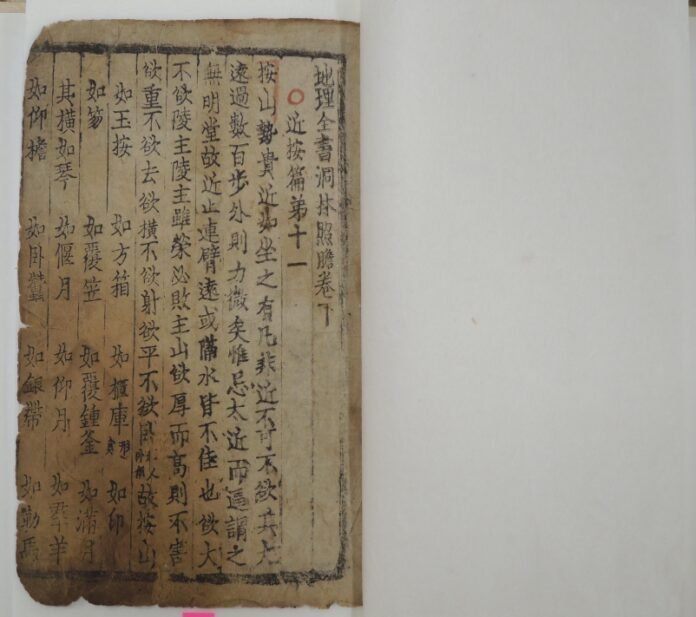 地理全書洞林照膽卷下
○近按篇第十一
按山勢貴近如坐之有几非近不可不欲其大
遠過數百步外則力微矣惟忌太近而逼謂之
無明堂故近止連臂遠或隔水皆不佳也欲大
不欲陵主陵主雖榮必敗主山欲厚而高則不害
欲重不欲去欲横不欲射欲平不欲卧故按山
如玉按 如方箱 如櫃庫 如印
如笏 如覆笠 如覆鍾釜 如滿月
其横如琴 如偃月 如仰月 如羣羊
如仰擔 如卧蠶 如銀帶 如勒馬